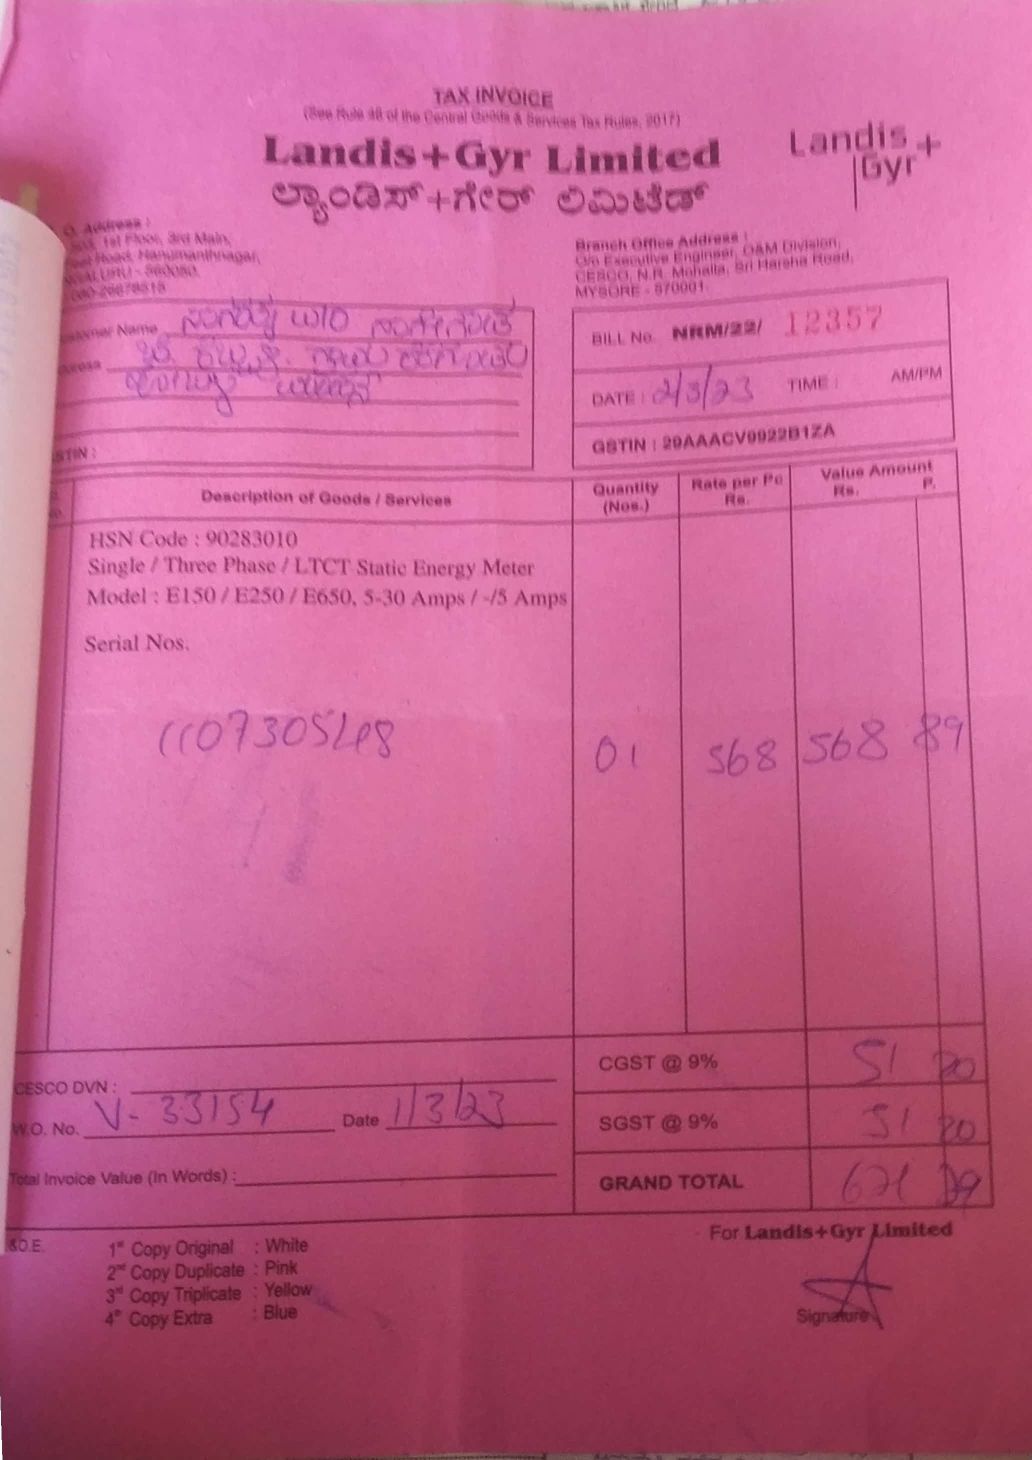 TAX INVOICE
(See Rule 46 of the Central Goods & Services Tax Rules, 2017)
Landis+Gyr Limited
Landis+
Gyr
ಲ್ಯಾಂಡಿಸ್+ಗೇರ್ ಲಿಮಿಟೆಡ್
Address :
1st Floor, 3rd Main,
Road, Hanumanthnagar,
Branch Office Address :
C/o Executive Engineer, O&M Division,
CESCO, N.R. Mohalla, Sri Harsha Road,
MYSORE - 570001.
Name
BILL No. NRM/22/ 12357
DATE : 2/3/23 TIME : AM/PM
GSTIN : 29AAACV9922B1ZA
Description of Goods / Services
Quantity (Nos.)
Rate per Pc Rs.
Value Amount
Rs. P.
HSN Code : 90283010
Single / Three Phase / LTCT Static Energy Meter
Model : E150 / E250 / E650, 5-30 Amps / -/5 Amps
Serial Nos.
1107305148 01 568 568 89
CGST @ 9% 51 20
CESCO DVN :
W.O. No. V- 33154 Date 1/3/23
SGST @ 9% 51 20
Total Invoice Value (In Words) :
GRAND TOTAL 671 29
For Landis+Gyr Limited
1st Copy Original : White
2nd Copy Duplicate : Pink
3rd Copy Triplicate : Yellow
4th Copy Extra : Blue
Signature